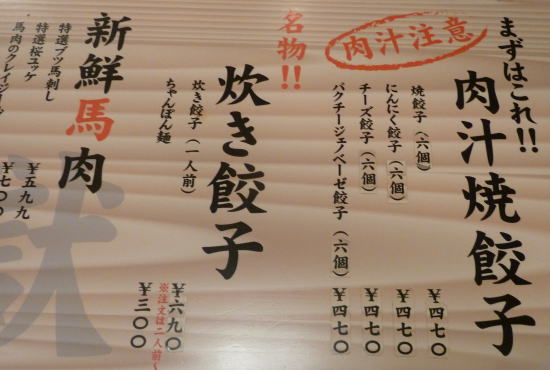 まずはこれ!!
肉汁焼餃子
肉汁注意
焼餃子（六個） ¥四七〇
にんにく餃子（六個） ¥四七〇
チーズ餃子（六個） ¥四七〇
パクチージェノベーゼ餃子（六個） ¥四七〇
名物!!
炊き餃子
炊き餃子（一人前） ¥六九〇
※注文は二人前〜
ちゃんぽん麺 ¥三〇〇
新鮮馬肉
特選ブツ馬刺し ¥五九九
特選桜ユッケ ¥七〇〇
馬肉のクレイジー